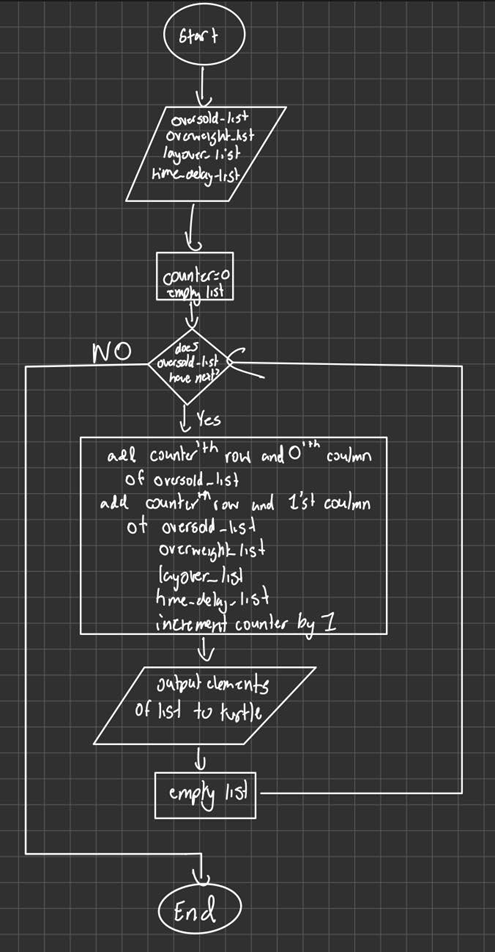 Start
oversold-list
overweight-list
layover-list
time-delay-list
counter=0
empty list
does
oversold-list
have next?
NO
Yes
add counter'th row and 0'th coulmn
of oversold_list
add counter'th row and 1'st coulmn
of oversold_list
overweight_list
layover_list
time-delay_list
increment counter by 1
output elements
of list to turtle
empty list
End